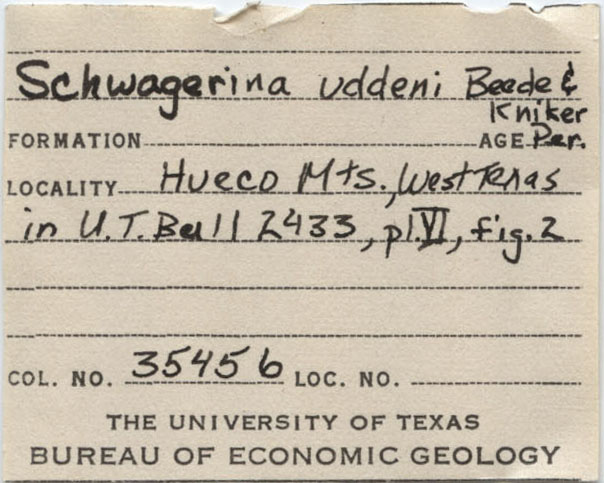 Schwagerina uddeni Beede &
Kniker
FORMATION AGE Per.
LOCALITY Hueco Mts., West Texas
in U.T. Bull 2433, pl. VI, fig. 2
COL. NO. 35456 LOC. NO.
THE UNIVERSITY OF TEXAS
BUREAU OF ECONOMIC GEOLOGY